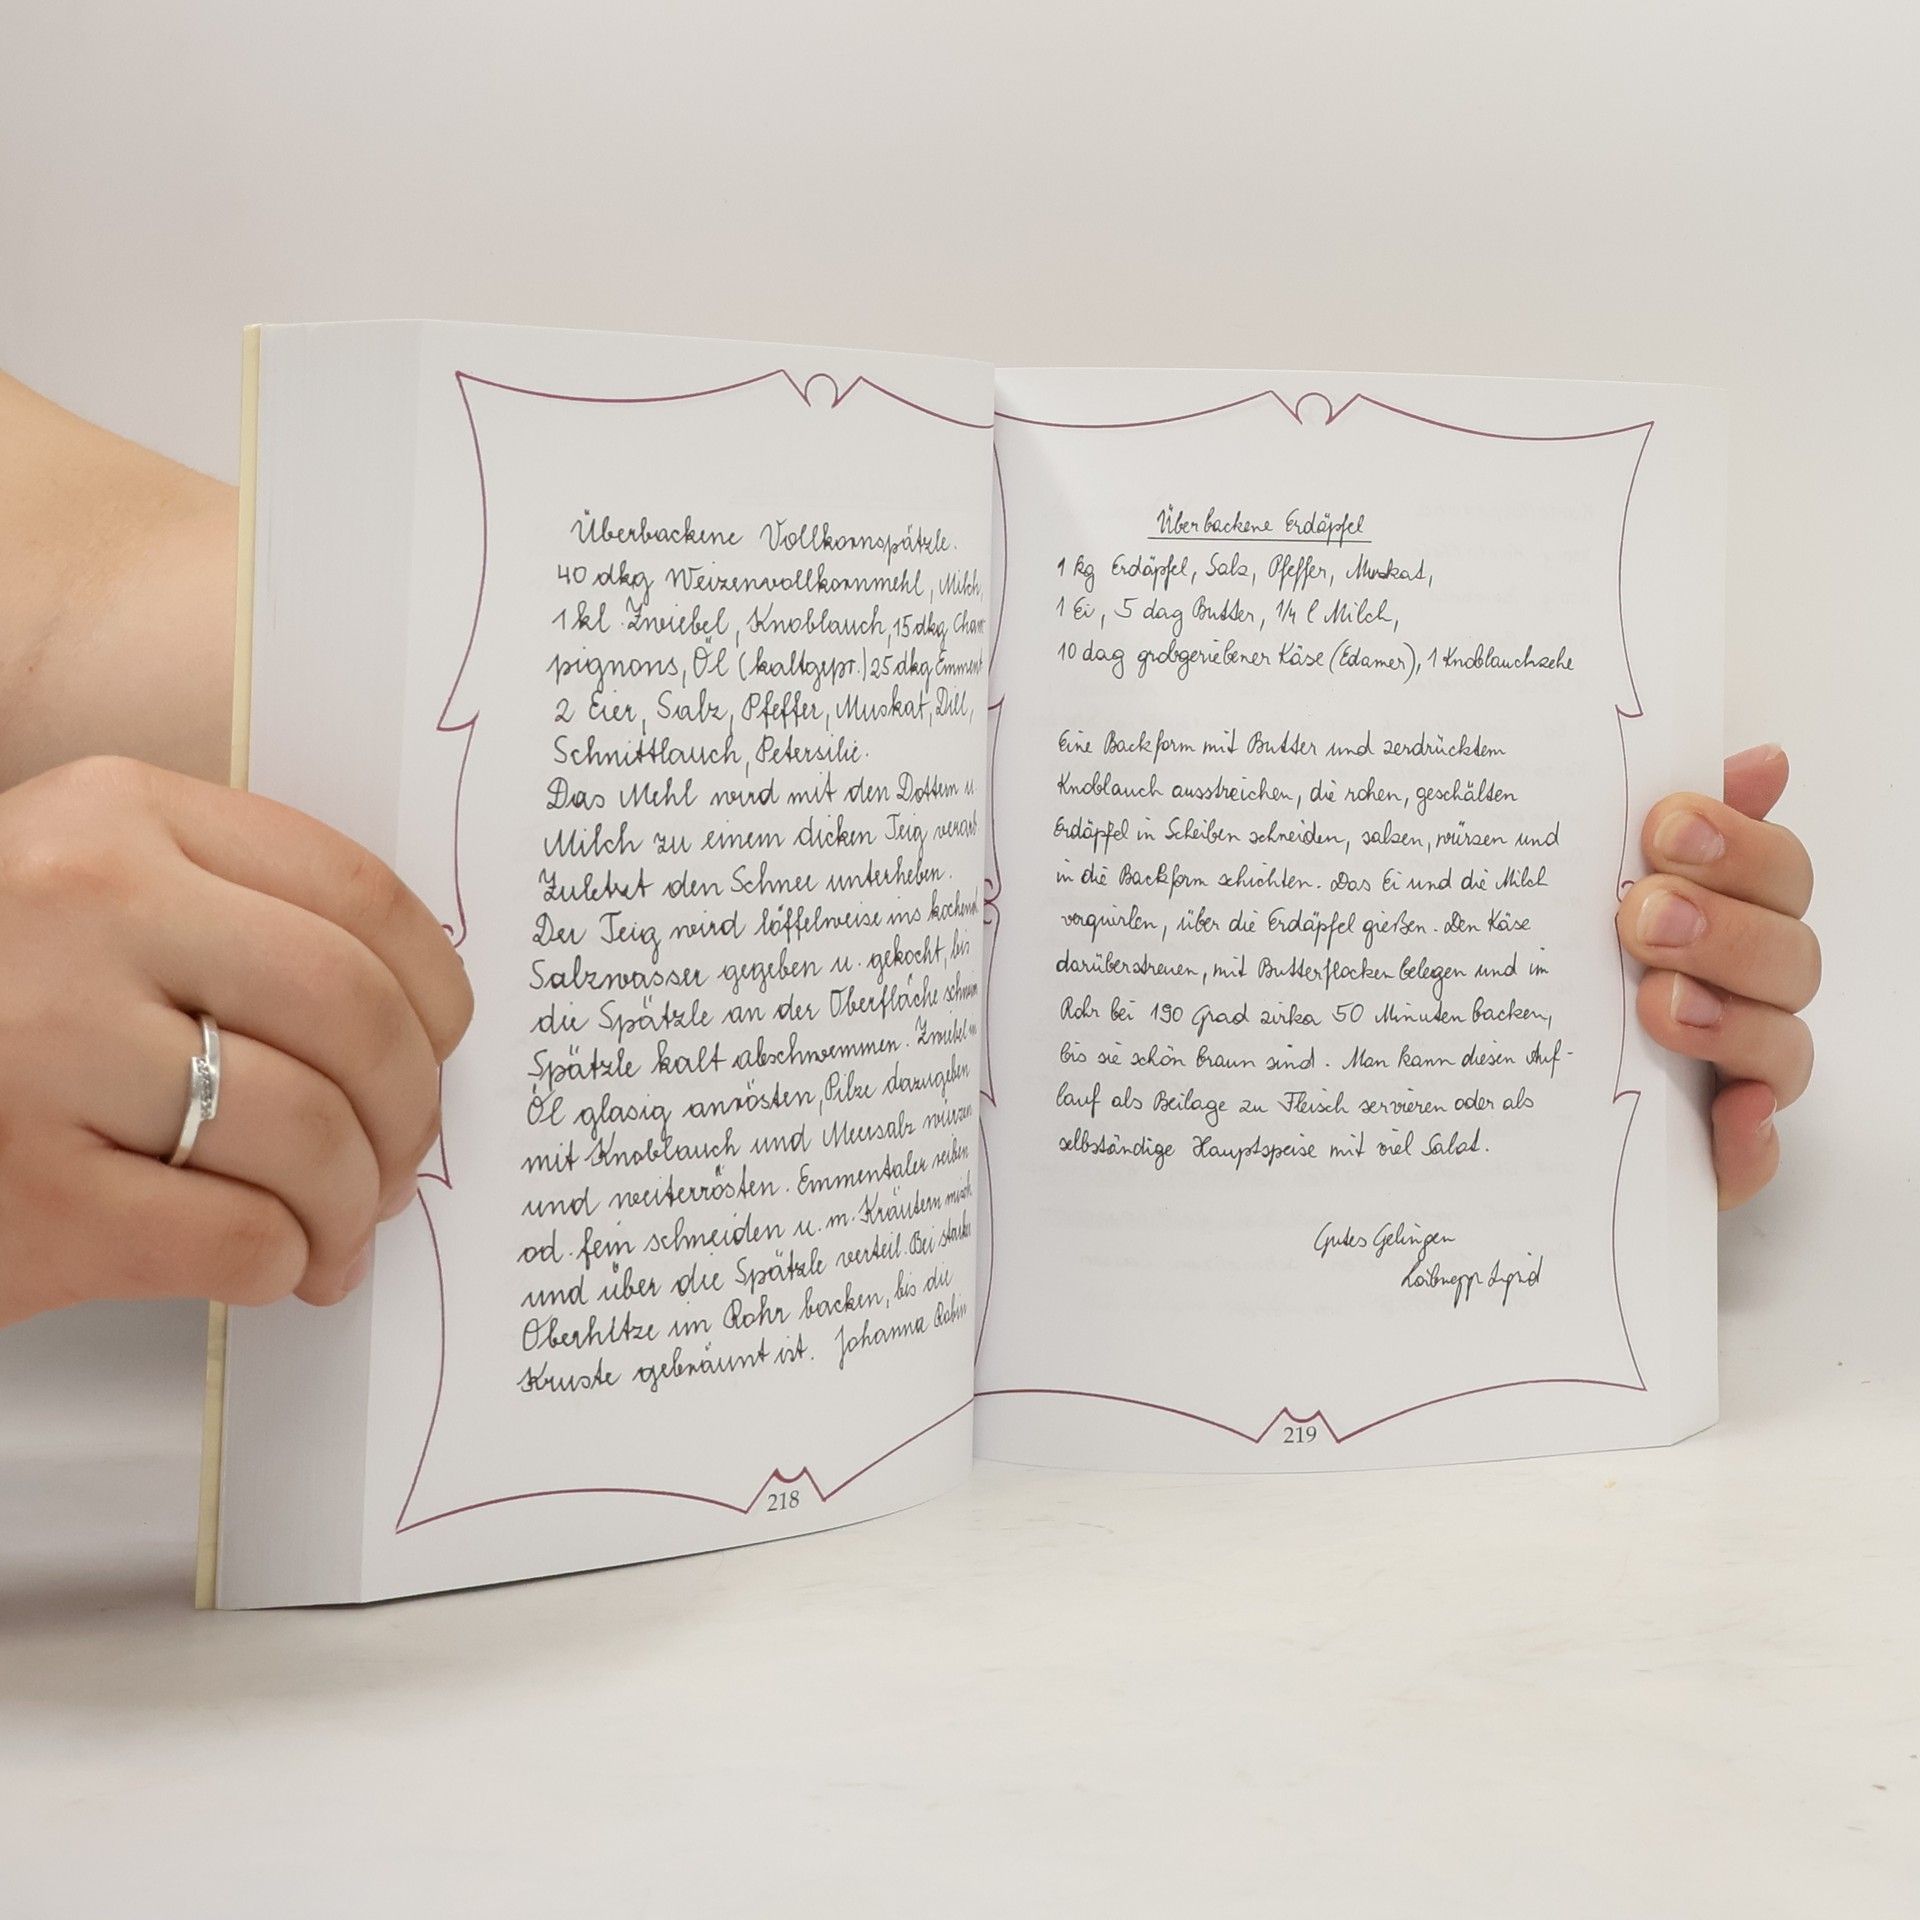 Überbackene Vollkornspätzle.
40 dkg Weizenvollkornmehl, Milch,
1 kl. Zwiebel, Knoblauch, 15 dkg Cham
pignons, Öl (kaltgepr.) 25 dkg Emment
2 Eier, Salz, Pfeffer, Muskat, Dill,
Schnittlauch, Petersilie.
Das Mehl wird mit den Dottern u.
Milch zu einem dicken Teig verarb
Zuletzt den Schnee unterheben.
Der Teig wird löffelweise ins kochend
Salzwasser gegeben u. gekocht, bis
die Spätzle an der Oberfläche schwim
Spätzle kalt abschwemmen. Zwiebel in
Öl glasig anrösten, Pilze dazugeben
mit Knoblauch und Meersalz würzen
und weiterrösten. Emmentaler reiben
od. fein schneiden u. m. Kräutern misch
und über die Spätzle verteil. Bei starker
Oberhitze im Rohr backen, bis die
Kruste gebräunt ist. Johanna
218
Überbackene Erdäpfel
1 kg Erdäpfel, Salz, Pfeffer, Muskat,
1 Ei, 5 dag Butter, 1/4 l Milch,
10 dag grobgeriebener Käse (Edamer), 1 Knoblauchzehe
Eine Backform mit Butter und zerdrücktem
Knoblauch ausstreichen, die rohen, geschälten
Erdäpfel in Scheiben schneiden, salzen, würzen und
in die Backform schichten. Das Ei und die Milch
verquirlen, über die Erdäpfel gießen. Den Käse
darüberstreuen, mit Butterflocken belegen und im
Rohr bei 190 Grad zirka 50 Minuten backen,
bis sie schön braun sind. Man kann diesen Auf-
lauf als Beilage zu Fleisch servieren oder als
selbständige Hauptspeise mit viel Salat.
Gutes Gelingen
219